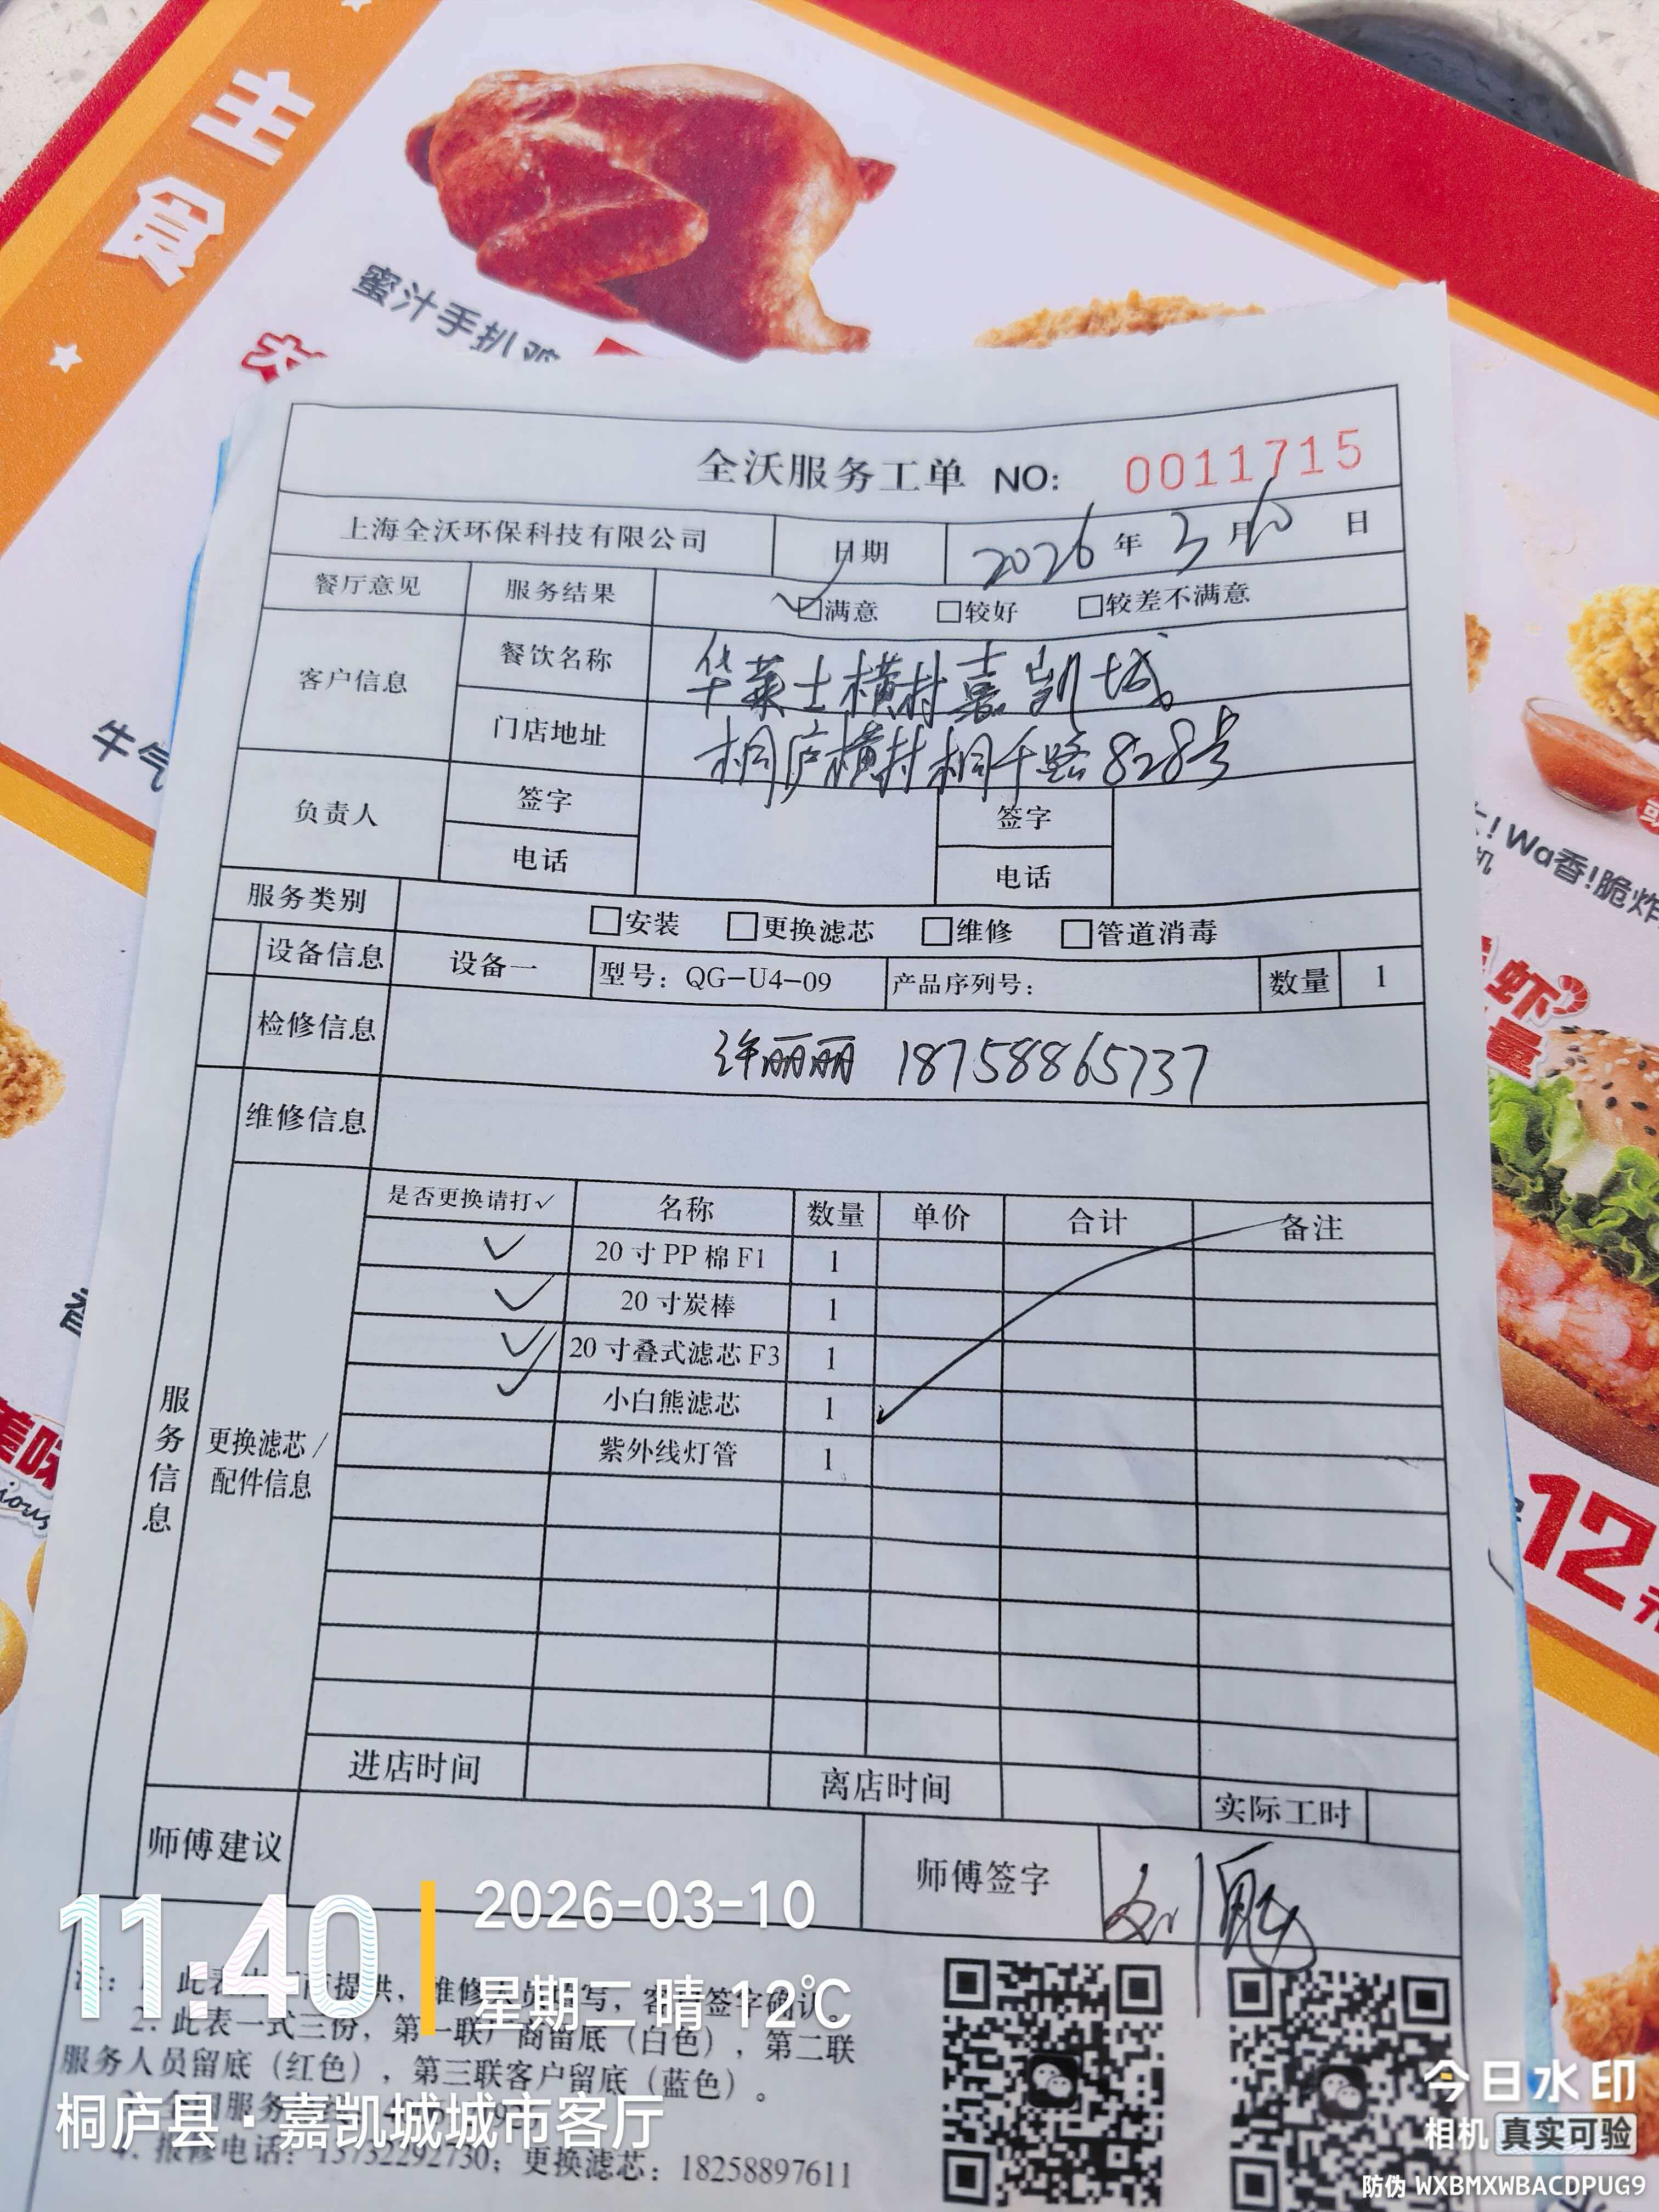 主食
蜜汁手扒鸡
牛气
Wa香!脆炸
虾
量
美味
12
全沃服务工单 NO: 0011715
上海全沃环保科技有限公司 日期 2026年3月10日
餐厅意见 服务结果 ☑满意 □较好 □较差不满意
客户信息 餐饮名称 华莱士横村嘉凯城
门店地址 桐庐横村桐千路828号
负责人 签字 签字
电话 电话
服务类别 □安装 □更换滤芯 □维修 □管道消毒
设备信息 设备一 型号: QG-U4-09 产品序列号: 数量 1
检修信息 许丽丽 18758865737
维修信息
服务信息
更换滤芯/
配件信息
是否更换请打✓ 名称 数量 单价 合计 备注
✓ 20寸PP棉F1 1
✓ 20寸炭棒 1
✓ 20寸叠式滤芯F3 1
✓ 小白熊滤芯 1
紫外线灯管 1
进店时间 离店时间 实际工时
师傅建议 师傅签字
2. 此表一式三份,第一联厂商留底(白色),第二联
服务人员留底(红色),第三联客户留底(蓝色)。
4. 报修电话: 15732292730; 更换滤芯: 18258897611
11:40
2026-03-10
星期二 晴 12℃
桐庐县·嘉凯城城市客厅
今日水印
相机 真实可验
防伪 WXBMXWBACDPUG9